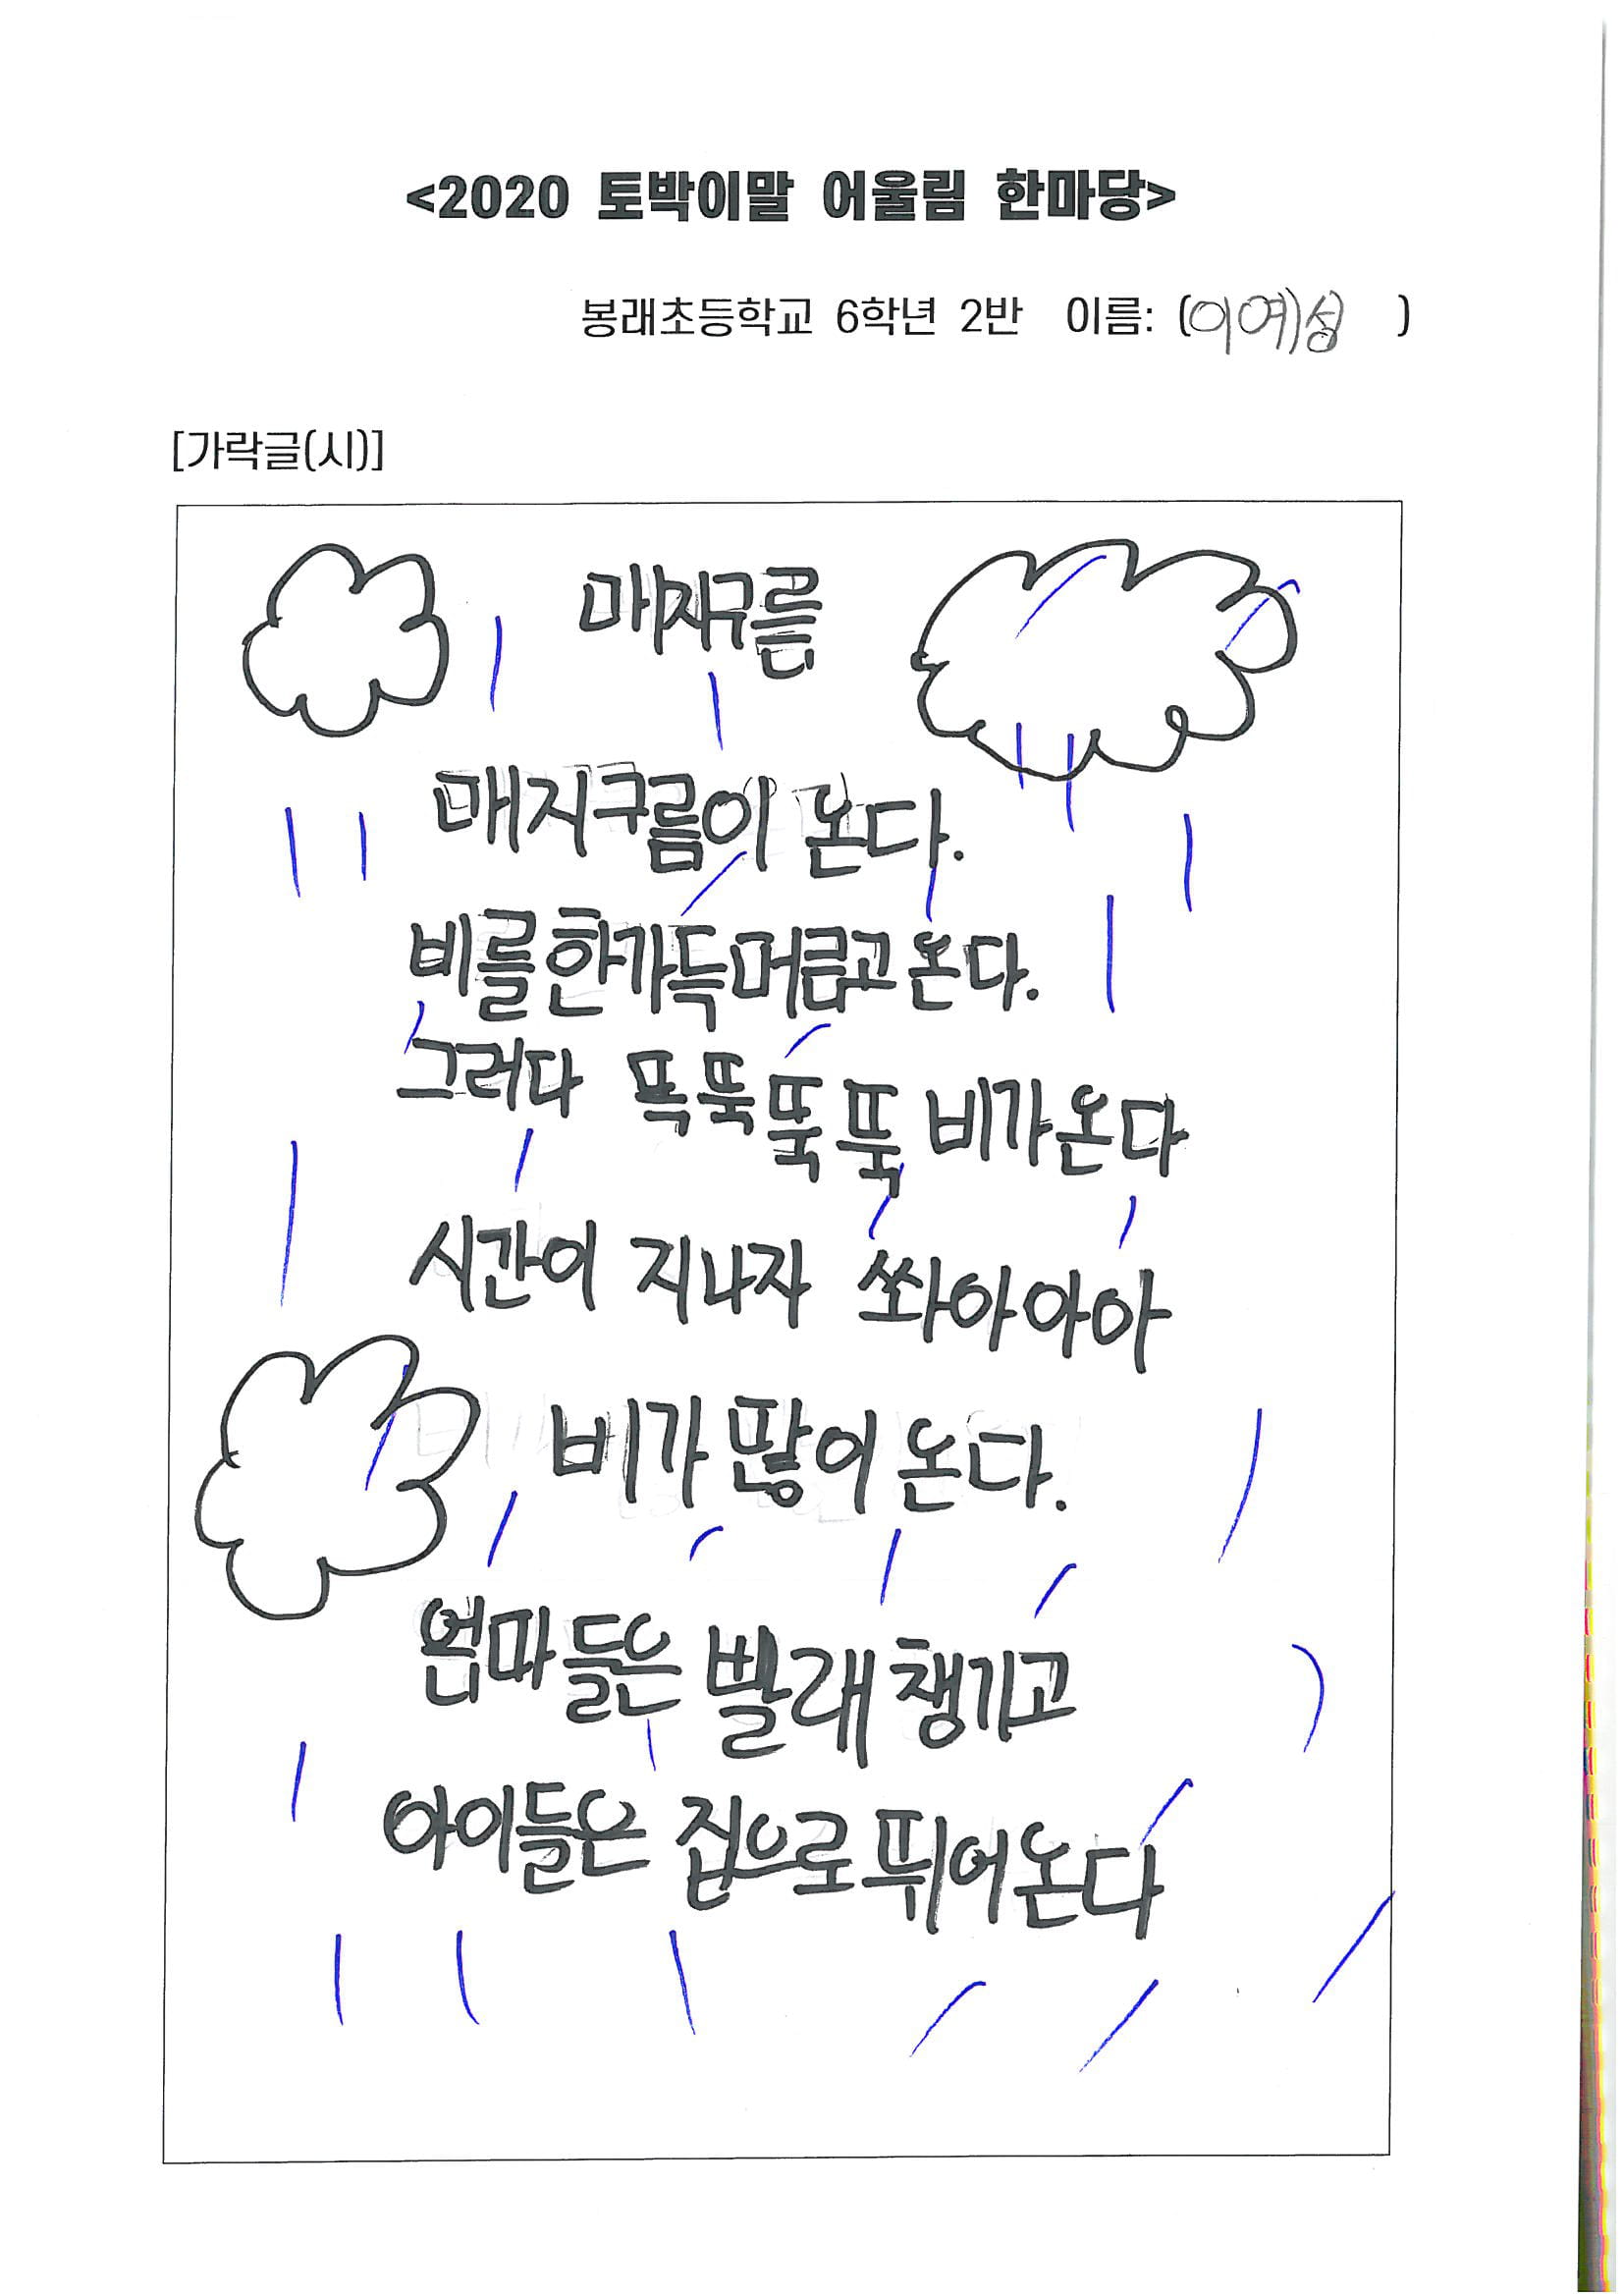 <2020 토박이말 어울림 한마당>
봉래초등학교 6학년 2반 이름: (이예성 )
[가락글(시)]
매지구름
매지구름이 온다.
비를 한가득 머금고 온다.
그러다 뚝뚝뚝뚝 비가 온다
시간이 지나자 쏴아아아
비가 많이 온다.
엄마들은 빨래 챙기고
아이들은 집으로 뛰어온다